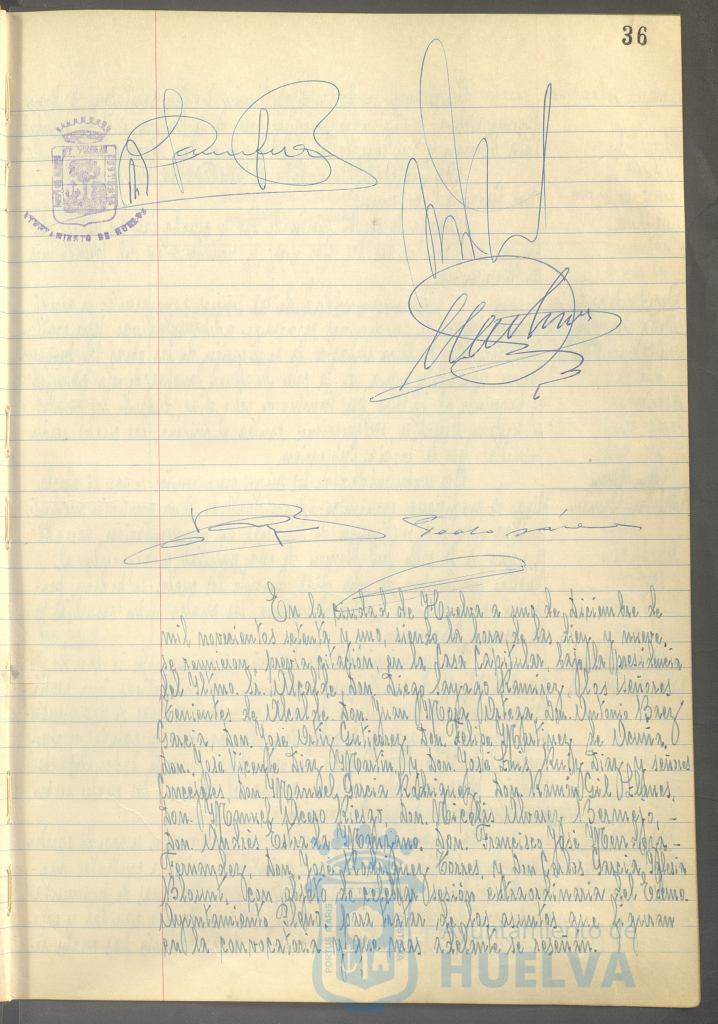 36
AYUNTAMIENTO DE HUELVA
Pedro
En la ciudad de Huelva a uno de diciembre de
mil novecientos setenta y uno, siendo la hora de las diez y nueve,
se reunieron, previa citación, en la Casa Capitular bajo la presidencia
del Iltmo. Sr. Alcalde, Don Diego Sayago Ramírez, los Señores
Tenientes de Alcalde Don Juan Arteaga, Don Antonio Baez
García, Don José Ortiz Gutiérrez, Don Felipe Martínez de Acuña,
Don José Vicente Díaz Martín, y Don José Luis Ruiz Díaz y señores
Concejales, Don Manuel García Rodríguez, Don Ramón Gil
Don Manuel Alcero Riesgo, Don Nicolás Alvarez Bermejo, -
Don Andrés Manzano, Don Francisco José Mendoza -
Fernandez, Don José Rodríguez Torres, y Don Carlos García Iglesia
con objeto de celebrar sesión extraordinaria del Excmo.
Ayuntamiento Pleno, para tratar de los asuntos que figuran
en la convocatoria y que más adelante se reseñan.
PORTUS MARIS
Ayuntamiento de
HUELVA